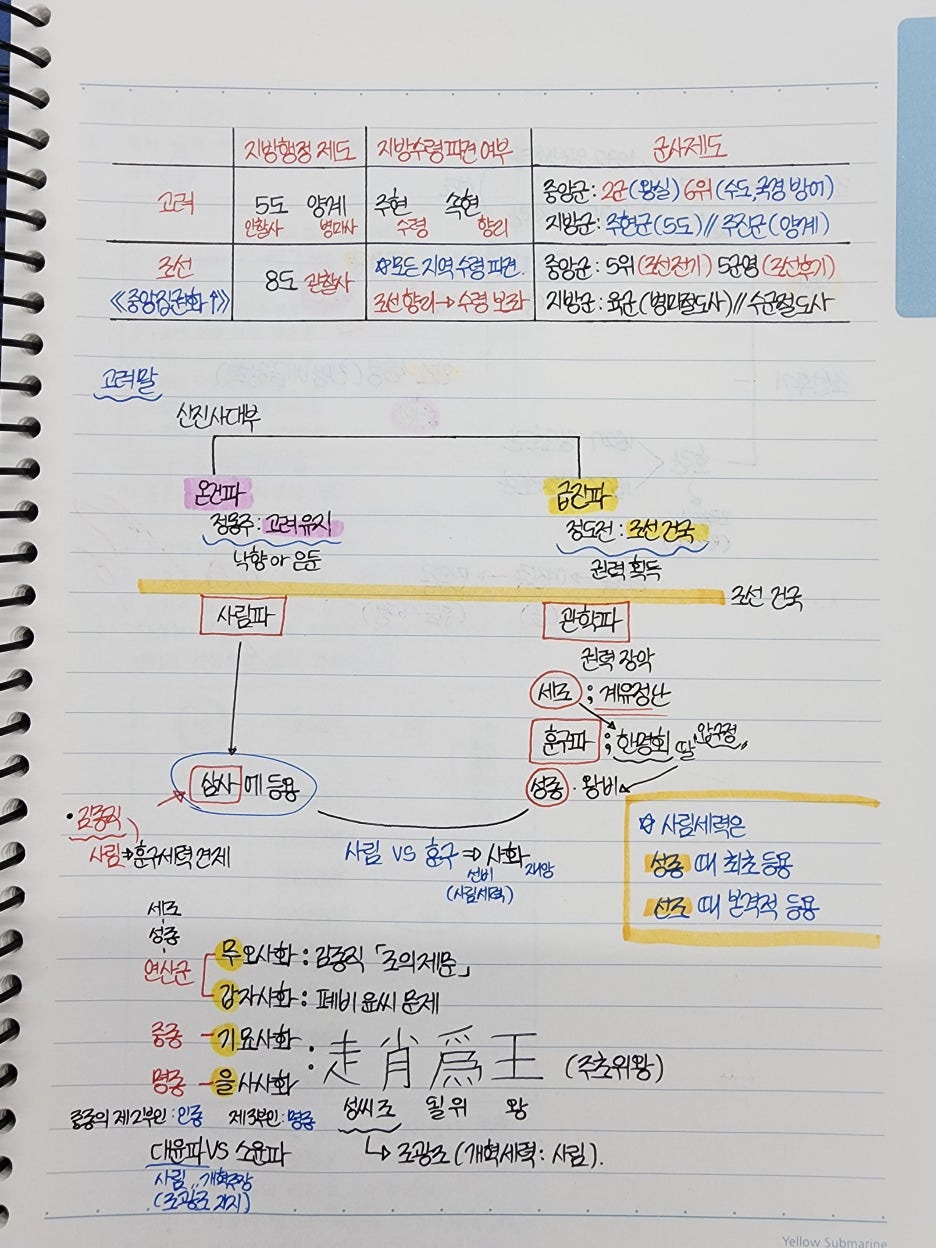 지방행정 제도 지방수령 파견 여부 군사제도
고려 5도 양계 주현 속현 중앙군: 2군(왕실) 6위(수도,국경 방어)
안찰사 병마사 수령 향리 지방군: 주현군(5도)//주진군(양계)
조선 8도 관찰사 ☆모든 지역 수령 파견. 중앙군: 5위(조선전기) 5군영(조선후기)
《중앙집권화↑》 조선향리→수령 보좌 지방군: 육군(병마절도사)//수군절도사
고려말
신진사대부
온건파 급진파
정몽주: 고려 유지 정도전: 조선 건국
낙향 야 은둔 권력 획득
조선 건국
사림파 관학파
권력 장악
세조 ; 계유정난
훈구파 ; 한명회 딸 "압구정"
삼사 에 등용 성종 · 왕비
• 김종직
사림→훈구세력 견제
사림 VS 훈구 ⇒ 사화
선비 재앙
(사림세력)
☆ 사림세력은
성종 때 최초 등용
선조 때 본격적 등용
세조
성종
연산군 무오사화 : 김종직 「조의제문」
갑자사화 : 폐비 윤씨 문제
중종 - 기묘사화 : 走肖爲王 (주초위왕)
명종 - 을사사화
성씨 조 될 위 왕
중종의 제2부인: 인종 제3부인: 명종
↳ 조광조 (개혁세력: 사림).
대윤파 VS 소윤파
사림, 개혁주장
(조광조 지지)
Yellow Submarine